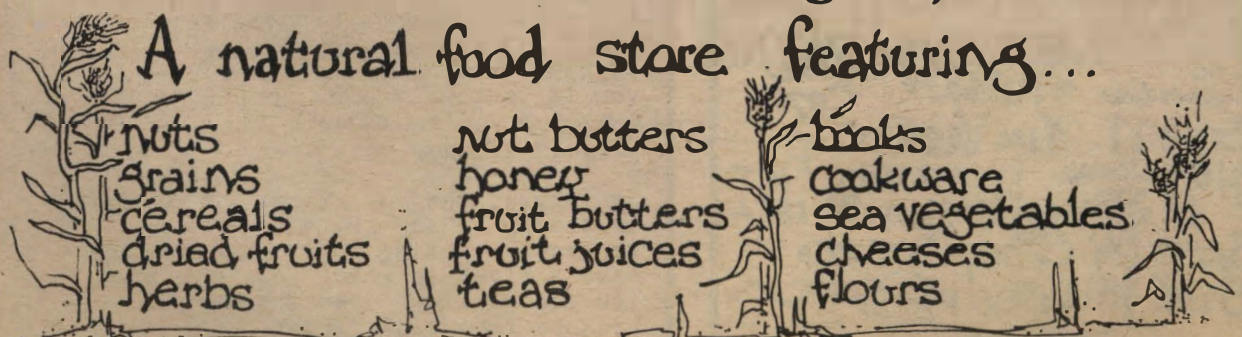 A natural food store featuring...
nuts
grains
cereals
dried fruits
herbs
nut butters
honey
fruit butters
fruit juices
teas
books
cookware
sea vegetables
cheeses
flours